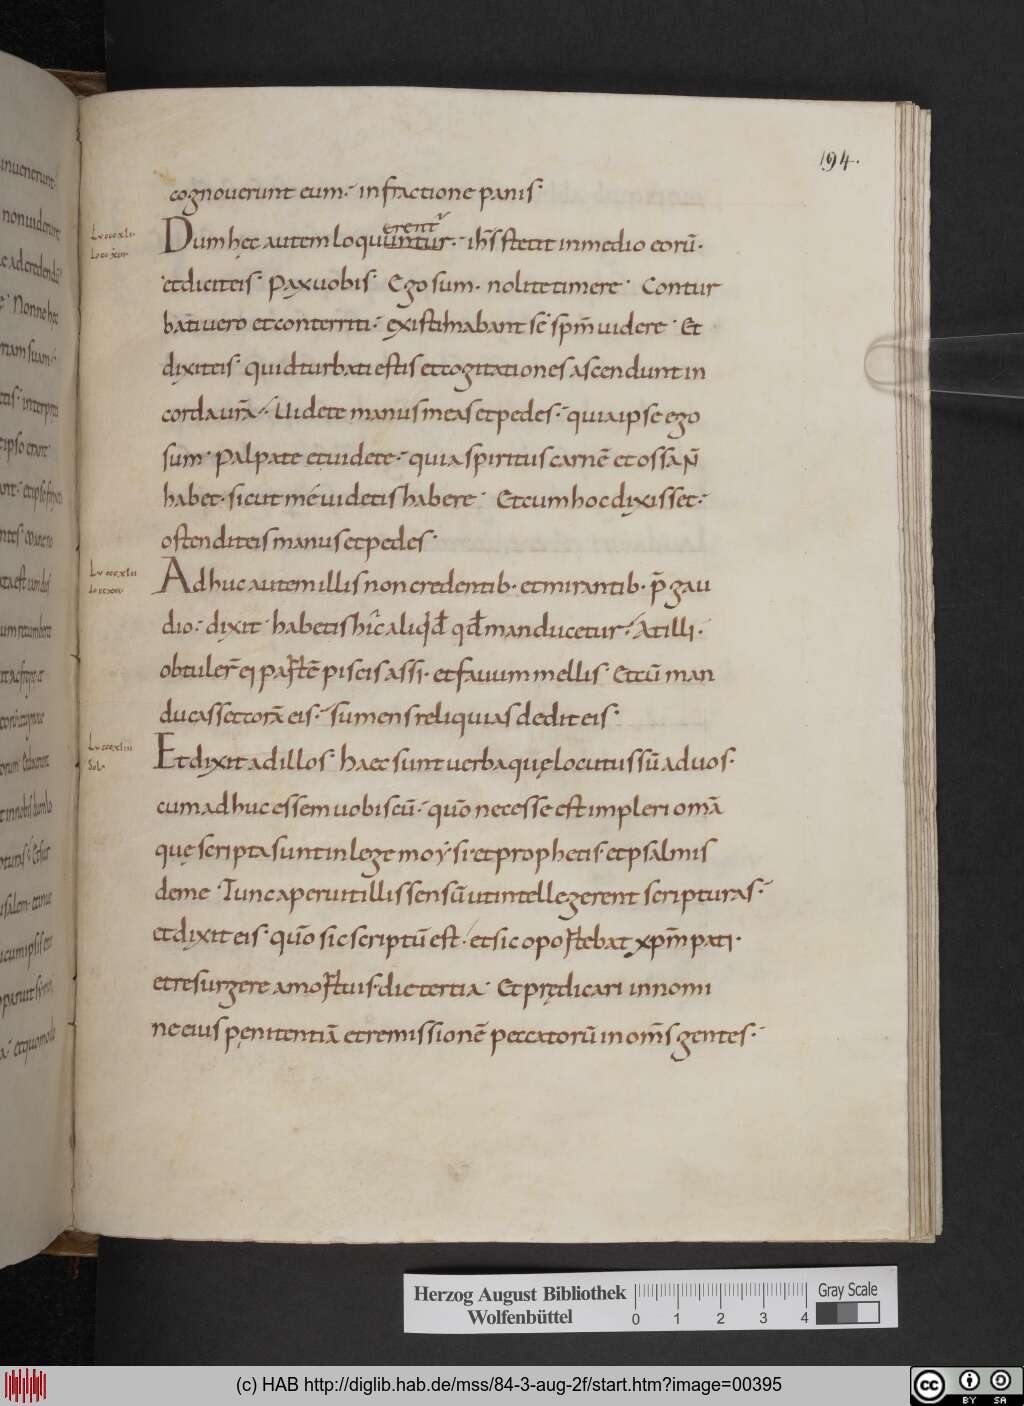 194.
cognouerunt eum. in fractione panis.
Dum hęc autem loquuntur. ih̄s stetit in medio eorū.
erent᷑
et dicit eis. Pax uobis. Ego sum. nolite timere. Contur
bati uero et conterriti. existimabant sē spm̄ uidere. Et
dixit eis. quid turbati estis et cogitationes ascendunt in
corda ur̄a. Uidete manus meas et pedes. quia ipse ego
sum. Palpate et uidete. quia spiritus carnē et ossa N̄
habet. sicut mé uidetis habere. Et cum hoc dixisset.
ostendit eis manus et pedes.
Adhuc autem illis non credentib. et mirantib. p̄ gau
dio. dixit. habetis hic aliqđ qđ manducetur. At illi.
obtuler̄ ei partē piscis assi. et fauum mellis. Et cū man
ducasset corā eis. sumens reliquias dedit eis.
Et dixit ad illos. haec sunt uerba quę locutus sū ad uos.
cum adhuc essem uobiscū. quō necesse est impleri om̄a
quę scripta sunt in lege moẏsi. et prophetis. et psalmis
de me. Tunc aperuit illis sensū ut intellegerent scripturas.
et dixit eis. quō sic scriptū est. et sic oportebat xpm̄ pati.
et resurgere a mortuis. die tertia. Et prędicari in nomi
ne eius pęnitentiā et remissionē peccatorū in om̄s gentes.
Herzog August Bibliothek
Wolfenbüttel
0 1 2 3 4
Gray Scale
(c) HAB http://diglib.hab.de/mss/84-3-aug-2f/start.htm?image=00395
cc BY SA